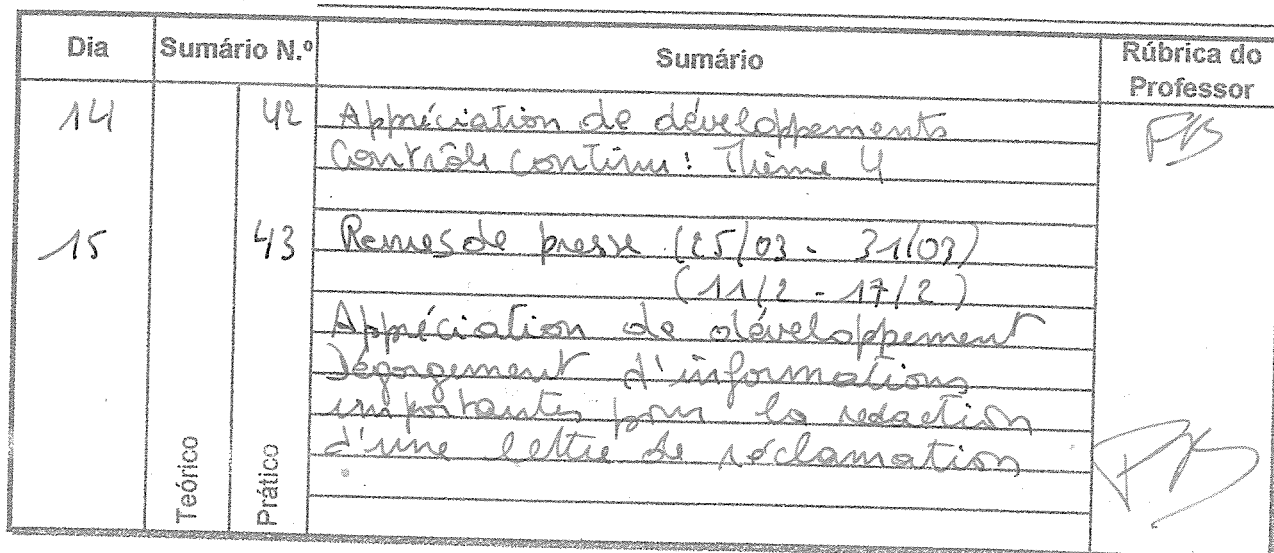 Dia Sumário N.º Sumário Rúbrica do Professor
14 42 Appréciation de développements
Contrôle continu : Thème 4
15 43 Revues de presse (25/03 - 31/03)
(11/2 - 17/2)
Appréciation de développement
Dégorgement d'informations
importantes pour la rédaction
d'une lettre de réclamation
Teórico
Prático